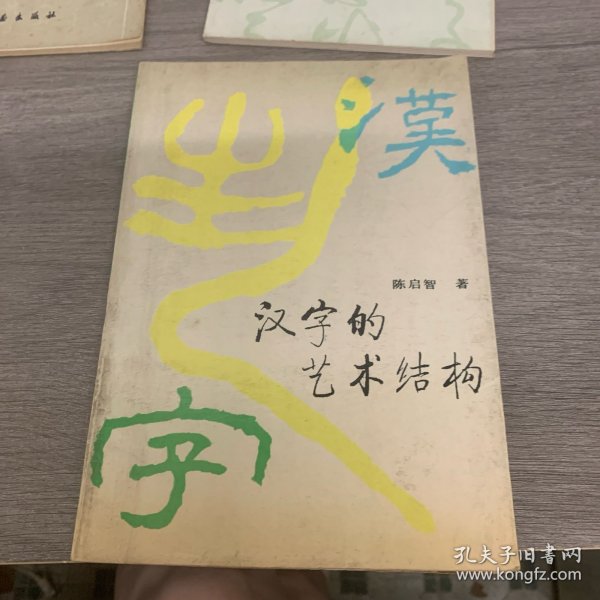 出版社
漢
字
陈启智 著
汉字的
艺术结构
孔夫子旧书网
www.kongfz.com